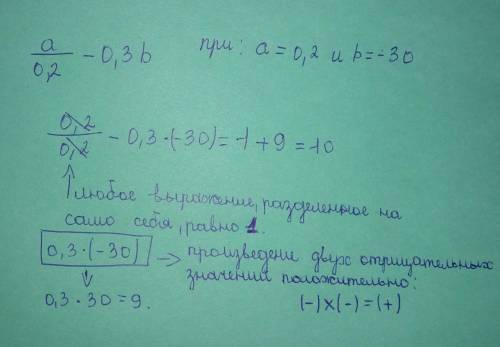 a/0,2 − 0,3b при: a = 0,2 и b = −30
0,2/0,2 − 0,3·(−30) = −1 + 9 = 10
любое выражение, разделенное на
само себя, равно 1.
0,3·(−30) → произведение двух отрицательных
значений положительно:
0,3·30 = 9. (−)×(−) = (+)